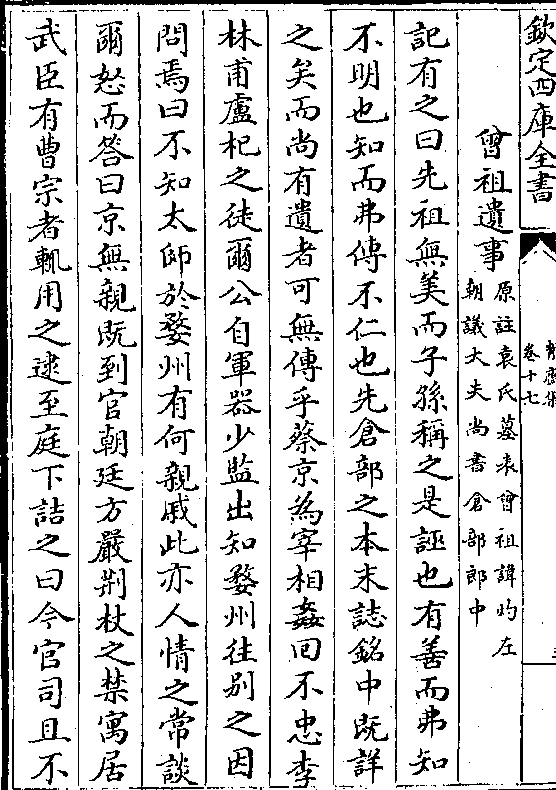 欽定四庫全書
卷十七
曾祖遺事
原註袁氏墓表曾祖諱灼左
朝議大夫尚書倉部郎中
記有之曰先祖無美而子孫稱之是誣也有善而弗知
不明也知而弗傳不仁也先倉部之本末誌銘中既詳
之矣而尚有遺者可無傳乎蔡京為宰相姦回不忠李
林甫盧杞之徒爾公自軍器少監出知婺州往别之因
問焉曰不知太師於婺州有何親戚此亦人情之常談
爾怒而答曰京無親既到官朝廷方嚴荆杖之禁寓居
武臣有曹宗者輒用之逮至庭下詰之曰今官司且不